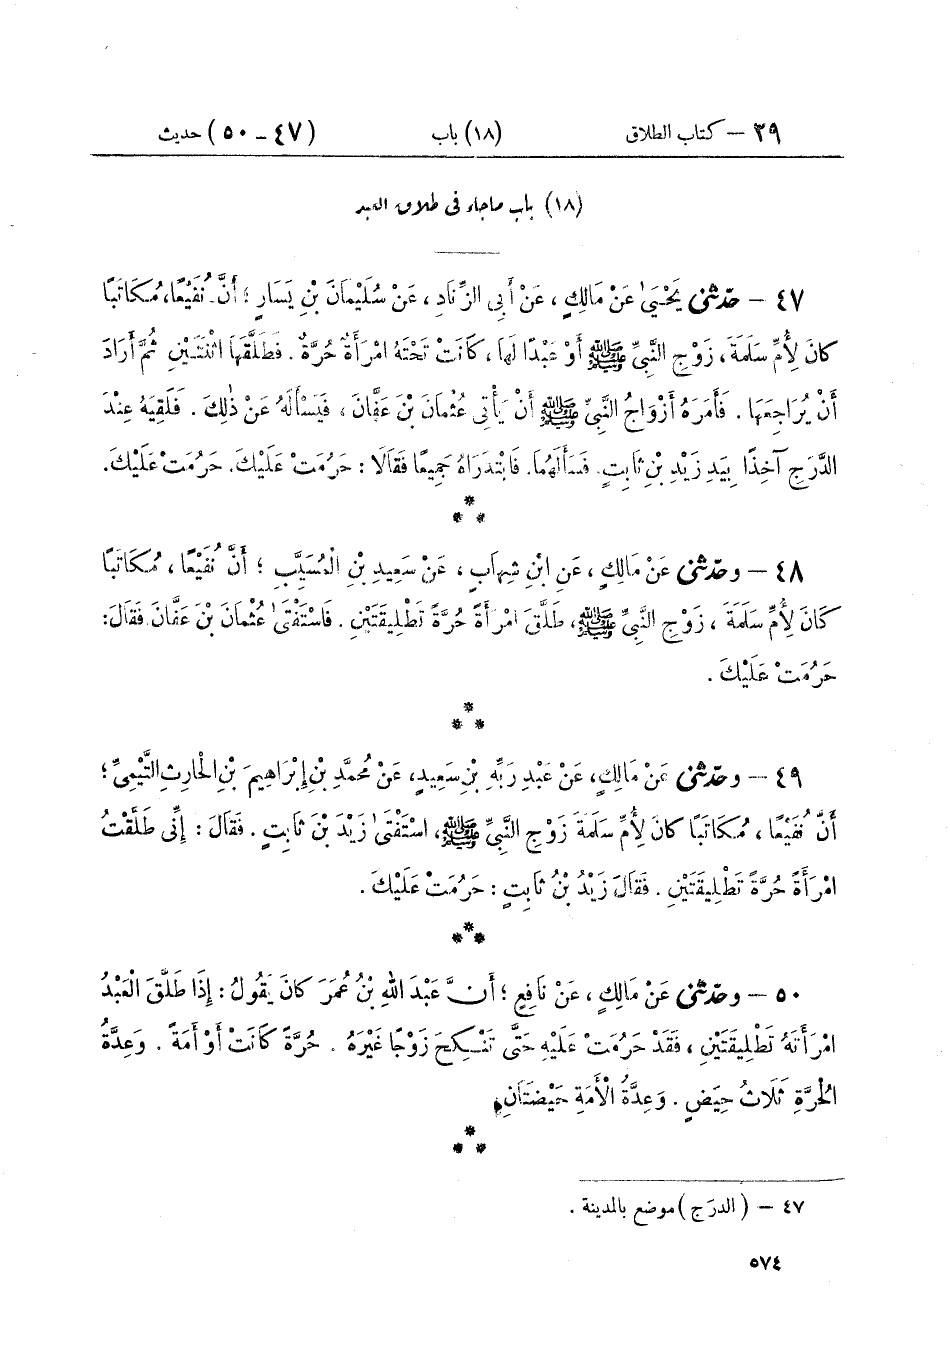 ٢٩ – كتاب الطلاق (١٨) باب (٤٧ – ٥٠) حديث
(١٨) باب ماجاء فى طلاق العبد
٤٧ – حدّثنى يَحْيَىٰ عَنْ مَالِكٍ، عَنْ أَبِى الزِّنَادِ، عَنْ سُلَيْمَانَ بْنِ يَسَارٍ؛ أَنَّ نُفَيْعًا، مُكَاتَبًا
كَانَ لِأُمِّ سَلَمَةَ، زَوْجِ النَّبِىِّ ﷺ أَوْ عَبْدًا لَهَا، كَانَتْ تَحْتَهُ امْرَأَةٌ حُرَّةٌ. فَطَلَّقَهَا اثْنَتَيْنِ ثُمَّ أَرَادَ
أَنْ يُرَاجِعَهَا. فَأَمَرَهُ أَزْوَاجُ النَّبِىِّ ﷺ أَنْ يَأْتِىَ عُثْمَانَ بْنَ عَفَّانَ، فَيَسْأَلَهُ عَنْ ذٰلِكَ. فَلَقِيَهُ عِنْدَ
الدَّرَجِ آخِذًا بِيَدِ زَيْدِ بْنِ ثَابِتٍ. فَسَأَلَهُمَا. فَابْتَدَرَاهُ جَمِيعًا فَقَالَا: حَرُمَتْ عَلَيْكَ. حَرُمَتْ عَلَيْكَ.
***
٤٨ – وحدّثنى عَنْ مَالِكٍ، عَنِ ابْنِ شِهَابٍ، عَنْ سَعِيدِ بْنِ الْمُسَيَّبِ؛ أَنَّ نُفَيْعًا، مُكَاتَبًا
كَانَ لِأُمِّ سَلَمَةَ، زَوْجِ النَّبِىِّ ﷺ، طَلَّقَ امْرَأَةً حُرَّةً تَطْلِيقَتَيْنِ. فَاسْتَفْتَىٰ عُثْمَانَ بْنَ عَفَّانَ فَقَالَ:
حَرُمَتْ عَلَيْكَ.
***
٤٩ – وحدّثنى عَنْ مَالِكٍ، عَنْ عَبْدِ رَبِّهِ بْنِ سَعِيدٍ، عَنْ مُحَمَّدِ بْنِ إِبْرَاهِيمَ بْنِ الْحَارِثِ التَّيْمِىِّ؛
أَنَّ نُفَيْعًا، مُكَاتَبًا كَانَ لِأُمِّ سَلَمَةَ زَوْجِ النَّبِىِّ ﷺ، اسْتَفْتَىٰ زَيْدَ بْنَ ثَابِتٍ. فَقَالَ: إِنِّى طَلَّقْتُ
امْرَأَةً حُرَّةً تَطْلِيقَتَيْنِ. فَقَالَ زَيْدُ بْنُ ثَابِتٍ: حَرُمَتْ عَلَيْكَ.
***
٥٠ – وحدّثنى عَنْ مَالِكٍ، عَنْ نَافِعٍ؛ أَنَّ عَبْدَ اللهِ بْنَ عُمَرَ كَانَ يَقُولُ: إِذَا طَلَّقَ الْعَبْدُ
امْرَأَتَهُ تَطْلِيقَتَيْنِ، فَقَدْ حَرُمَتْ عَلَيْهِ حَتَّى تَنْكِحَ زَوْجًا غَيْرَهُ. حُرَّةً كَانَتْ أَوْ أَمَةً. وَعِدَّةُ
الْحُرَّةِ ثَلَاثُ حِيَضٍ. وَعِدَّةُ الْأَمَةِ حَيْضَتَانِ.
***
٤٧ – (الدرَج) موضع بالمدينة.
٥٧٤